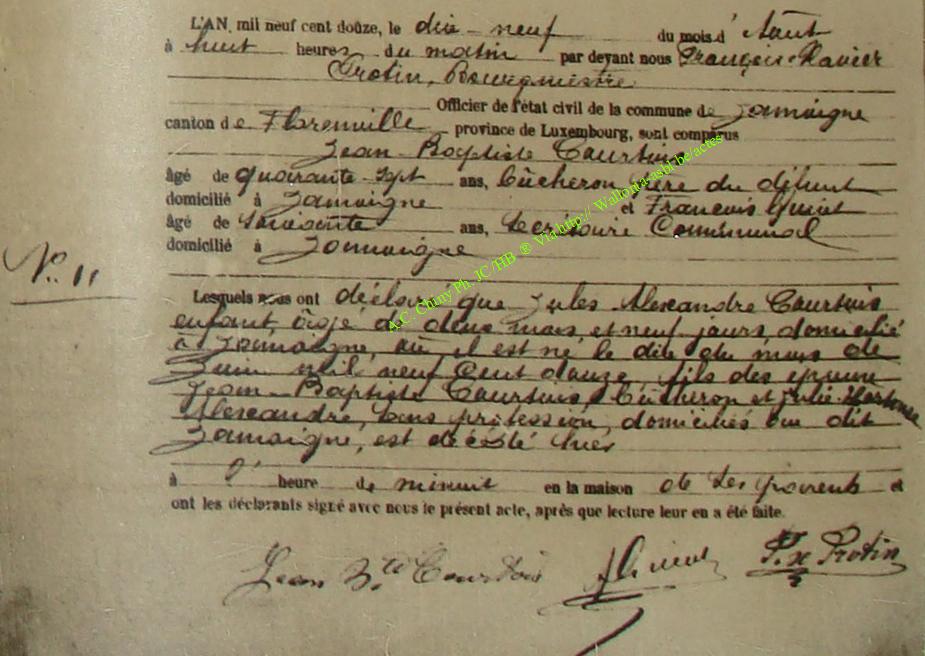 L'AN, mil neuf cent douze, le dix-neuf du mois d'Août
à huit heures du matin par devant nous François-Xavier
Protin, Bourgmestre
Officier de l'état civil de la commune de Jamoigne
canton de Florenville province de Luxembourg, sont comparus
Jean-Baptiste Courtois
âgé de quarante-sept ans, Bûcheron père du défunt
domicilié à Jamoigne et François
âgé de soixante ans, Secrétaire Communal
domicilié à Jamoigne
N° 11
Lesquels nous ont déclaré que Jules Alexandre Courtois
enfant, âgé de deux mois et neuf jours domicilié
à Jamoigne, où il est né le dix du mois de
Juin mil neuf cent douze, fils des époux
Jean-Baptiste Courtois, Bûcheron et Julie
Alexandre, sans profession, domiciliés au dit
Jamoigne, est décédé hier
à l' heure de minuit en la maison de ses parents et
ont les déclarants signé avec nous le présent acte, après que lecture leur en a été faite.
Jean Bte Courtois
F.x Protin
A.C. Chiny Ph. JC/HB ® Via http:// Wallonia-asbl.be/actes